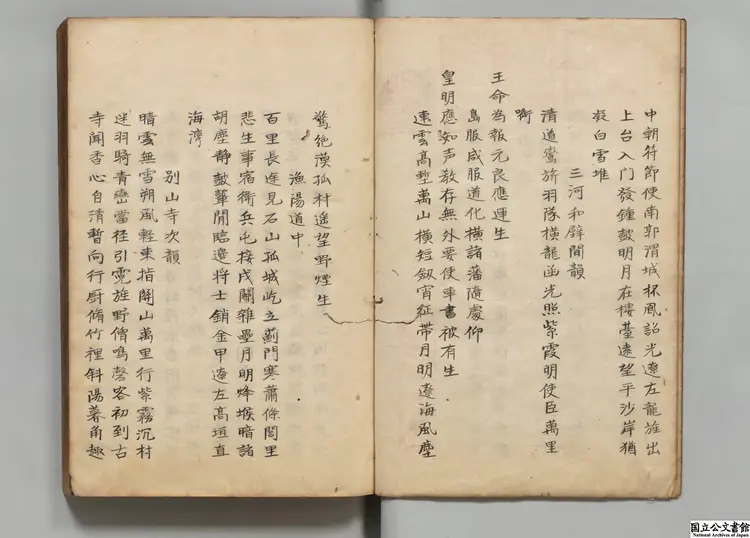 中朝符節使南郭渭城杯風詔光遼左龍旌出
上台入門發鍾皷明月在樓䑓遠望平沙岸猶
凝白雪堆
三河和壁間韻
清道鸞旂羽隊橫龍函光照紫霞明使臣萬里
銜
王命為報元良應運生
島服咸服道化橫諸藩隨處仰
皇明應知声教存無外要使車書被有生
連雲高塹萬山橫短劔宵征帶月明遼海風塵
驚絶漠孤村遥望野煙生
漁陽道中
百里長途見石山孤城屹立薊門寒蕭條閭里
悲生事宿衛兵屯接戍關雜壘月明烽堠暗諸
胡塵静皷鼙閒臨邉將士銷金甲遼左高垣直
海湾
別山寺次韻
晴雲無雪朔風輕東指關山萬里行紫霧沉村
迷羽騎青巒當徃引霓旌野僧鳴磬客初到古
寺聞香心自清暫向行厨脩竹裡斜陽暮角趣
国立公文書館
National Archives of Japan